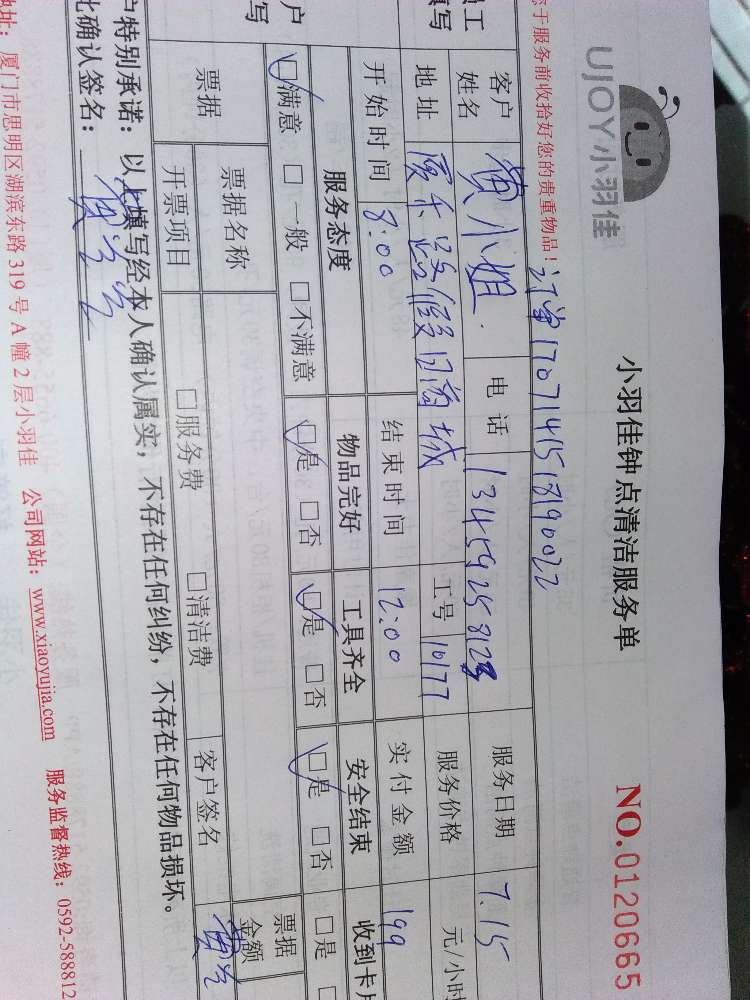 UJOY小羽佳
小羽佳钟点清洁服务单
NO.0120665
您于服务前收拾好您的贵重物品! 订单1707141518190022
客户姓名 黄小姐 电话 服务日期 7.15
地址 假日商城 工号 10177 服务价格 元/小时
开始时间 8:00 结束时间 12:00 实付金额 199
服务态度 物品完好 工具齐全 安全结束 收到卡片
☑满意 □一般 □不满意 ☑是 □否 ☑是 □否 ☑是 □否 □是
票据 票据名称 票据金额
开票项目 □服务费 □清洁费 客户签名
户特别承诺：以上填写经本人确认属实，不存在任何纠纷，不存在任何物品损坏。
此确认签名：
地址：厦门市思明区湖滨东路 319 号 A 幢 2 层小羽佳 公司网站：www.xiaoyujia.com 服务监督热线：0592-588812